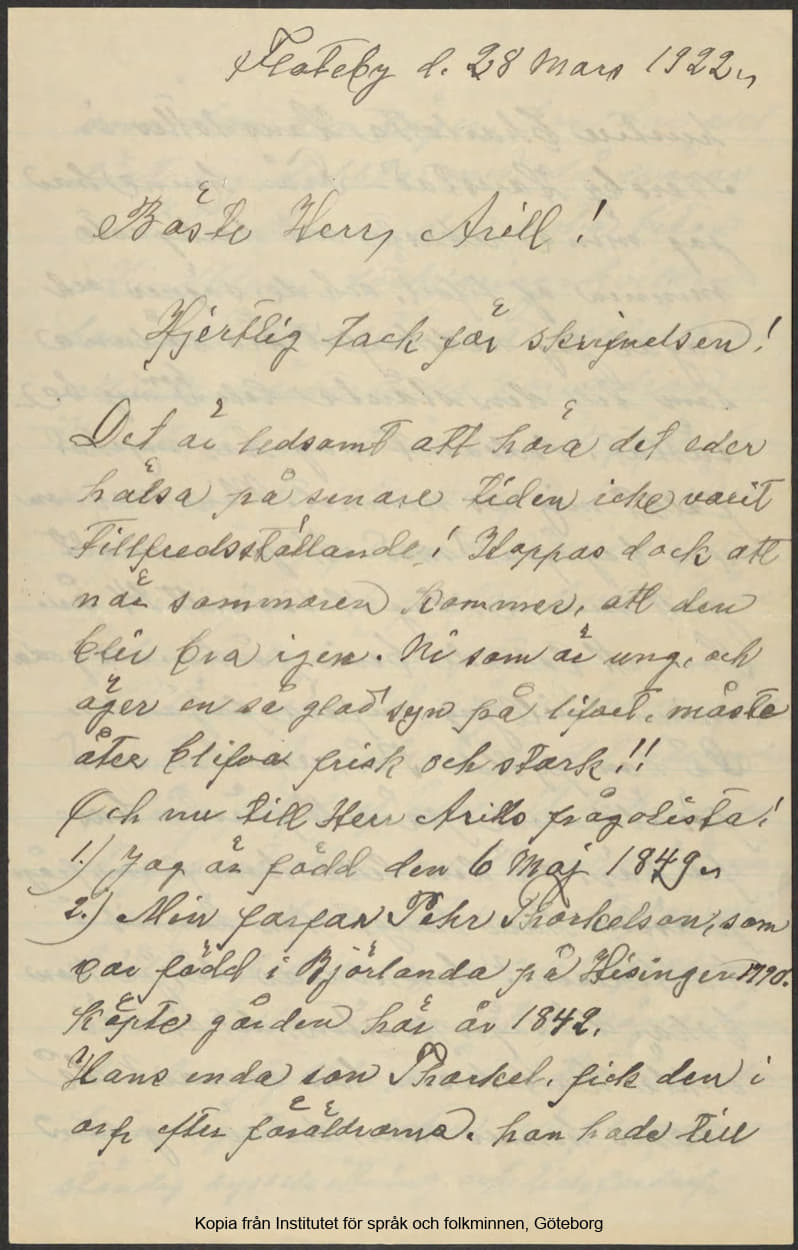 Floteby d. 28 Mars 1922.
Bäste Herr Arill!
Hjertlig tack för skrifvelsen!
Det är ledsamt att höra det eder
hälsa på senare tiden icke varit
tillfredsställande! Hoppas dock att
när sommaren kommer, att den
blir bra igen. Ni som är ung, och
äger en så glad syn på lifvet, måste
åter blifva frisk och stark!!
Och nu till Herr Arills frågolista!
1.) Jag är född den 6 Maj 1849.
2.) Min farfar Pehr Thorkelson, som
var född i Björlanda på Hisingen 1790.
köpte gården här år 1842.
Hans enda son Thorkel, fick den i
arf efter föräldrarna. han hade till
Kopia från Institutet för språk och folkminnen, Göteborg